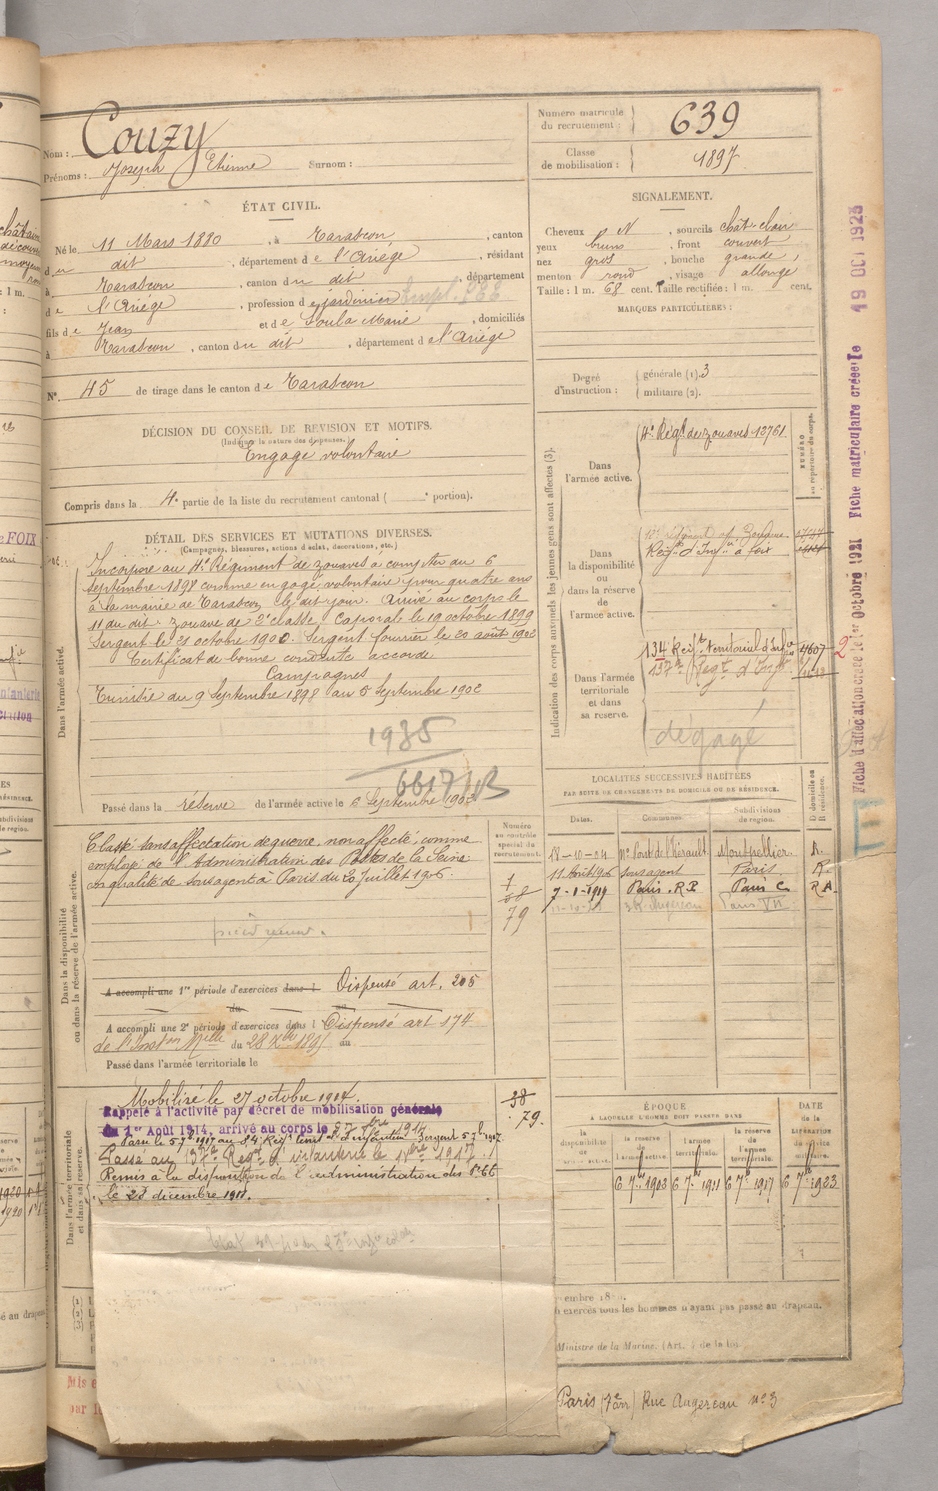 Nom : Couzy
Prénoms : Joseph Etienne Surnom :
Numéro matricule du recrutement : 639
Classe de mobilisation : 1897
ÉTAT CIVIL.
Né le 11 Mars 1880, à Tarascon, canton
du dit, département de l'Ariège, résidant
à Tarascon, canton du dit, département
de l'Ariège, profession de jardinier
fils de Jean et de Soula Marie, domiciliés
à Tarascon, canton du dit, département de l'Ariège
N° 45 de tirage dans le canton de Tarascon
DÉCISION DU CONSEIL DE RÉVISION ET MOTIFS.
(Indiquer la nature des dispenses.)
Engagé volontaire
Compris dans la 4e partie de la liste du recrutement cantonal ( e portion).
SIGNALEMENT.
Cheveux N, sourcils chât-clair
yeux bruns, front couvert
nez gros, bouche grande,
menton rond, visage allongé
Taille : 1 m. 68 cent. Taille rectifiée : 1 m. cent.
MARQUES PARTICULIÈRES :
Degré d'instruction : générale (1). 3
militaire (2).
DÉTAIL DES SERVICES ET MUTATIONS DIVERSES.
(Campagnes, blessures, actions d'éclat, décorations, etc.)
Dans l'armée active.
Incorporé au 4e Régiment de zouaves à compter du 6
septembre 1898 comme engagé volontaire pour quatre ans
à la mairie de Tarascon le dit jour. Arrivé au corps le
11 du dit. zouave de 2e classe. Caporal le 19 octobre 1899
Sergent le 21 octobre 1900. Sergent fourrier le 20 août 1902
Certificat de bonne conduite accordé
Campagnes
Tunisie du 9 Septembre 1898 au 5 Septembre 1902
1935
Passé dans la réserve de l'armée active le 6 Septembre 1902
Indication des corps auxquels les jeunes gens sont affectés (3).
NUMÉRO au répertoire du corps.
Dans l'armée active.
4e Régt de zouaves 12761
Dans la disponibilité ou dans la réserve de l'armée active.
Régt d'Infie à Foix
Dans l'armée territoriale et dans sa réserve.
134 Regt territorial d'Infie 4607
137e Regt d'Infie
dégagé
Dans la disponibilité ou dans la réserve de l'armée active.
Numéro au contrôle spécial du recrutement.
Classé sans affectation de guerre, non affecté, comme
employé de l'Administration des Postes de la Seine
en qualité de sous agent à Paris du 20 juillet 1906.
79
A accompli une 1re période d'exercices dans l Dispensé art. 205
du au
A accompli une 2e période d'exercices dans l Dispensé art 174
de l'Inston Mlle du 28 Xbre 1895 au
Passé dans l'armée territoriale le
LOCALITÉS SUCCESSIVES HABITÉES
PAR SUITE DE CHANGEMENTS DE DOMICILE OU DE RÉSIDENCE.
Dates. Communes. Subdivisions de région. D domicile ou R résidence.
18-10-04 Montpellier
11 Août 1906 sous agent Paris R.
7-1-1919 Paris. R.P. Paris C. RA
Dans l'armée territoriale et dans sa réserve.
Mobilisé le 27 octobre 1914.
Rappelé à l'activité par décret de mobilisation générale
du 1er Août 1914, arrivé au corps le
Passé au 137e Regt d'infanterie le
Remis à la disposition de l'administration des Ptes
le 28 décembre 1918.
38
79.
ÉPOQUE
À LAQUELLE L'HOMME DOIT PASSER DANS
la disponibilité de l'armée active. la réserve de l'armée active. l'armée territoriale. la réserve de l'armée territoriale.
DATE de la libération du service militaire.
6 7bre 1903 6 7bre 1911 6 7bre 1917 6 7bre 1923
exercés tous les hommes n'ayant pas passé au drapeau.
Ministre de la Marine. (Art. ) de la loi
Paris (7e arr) Rue Augereau no 3
Fiche d'affectation créée le 1er Octobre 1921
Fiche matriculaire créée le 19 OCT 1923